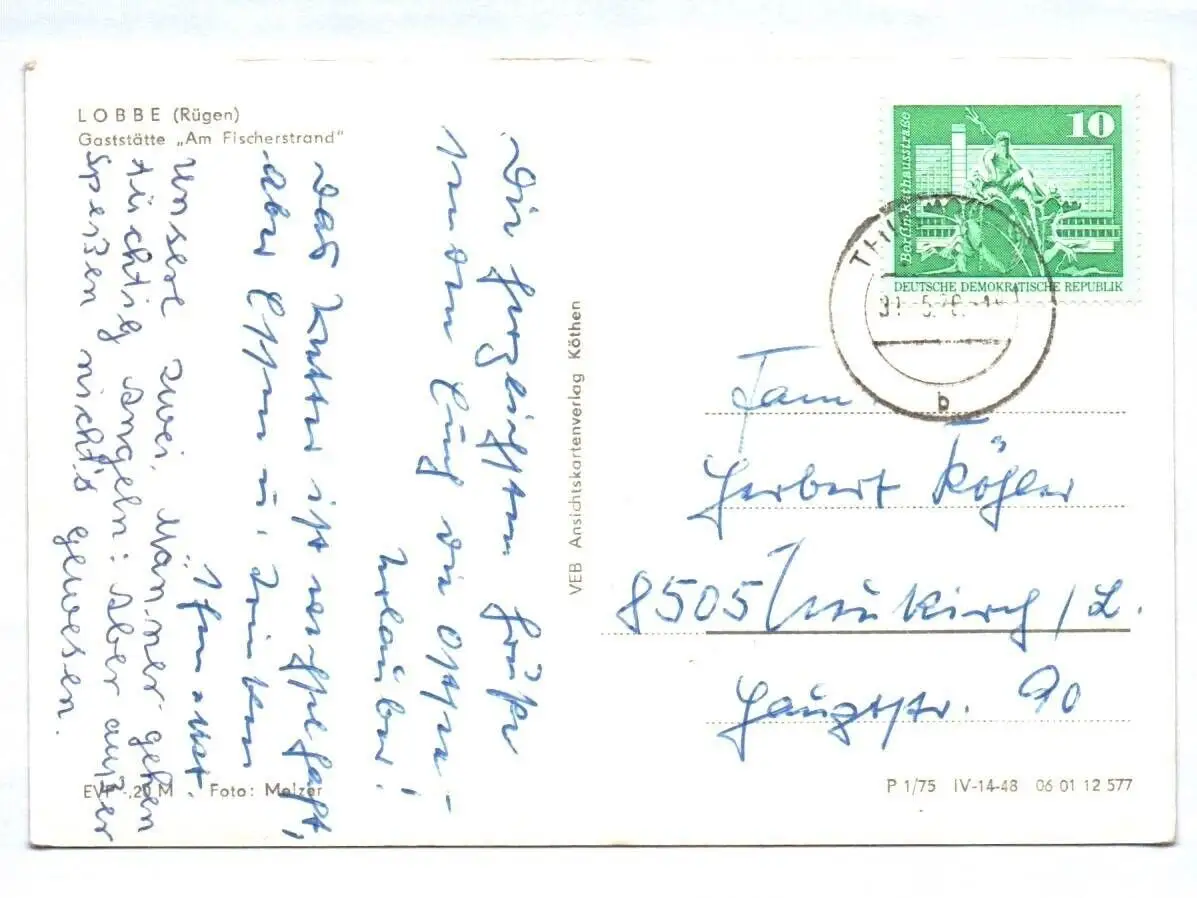 LOBBE (Rügen)
Gaststätte „Am Fischerstrand"
Die herzlichsten Grüße
senden Euch die Ostsee-
Urlauber!
Das Wetter ist wechselhaft,
aber Essen u. Trinken
Unsere zwei Männer gehen
tüchtig Angeln: Aber außer
Speßen nicht's gewesen.
EVP -,20 M Foto: Melzer
VEB Ansichtskartenverlag Köthen
10
Berlin, Rathausstraße
DEUTSCHE DEMOKRATISCHE REPUBLIK
b
Fam
Herbert Köhler
8505 Neukirch/L.
Hauptstr. 90
P 1/75 IV-14-48 06 01 12 577